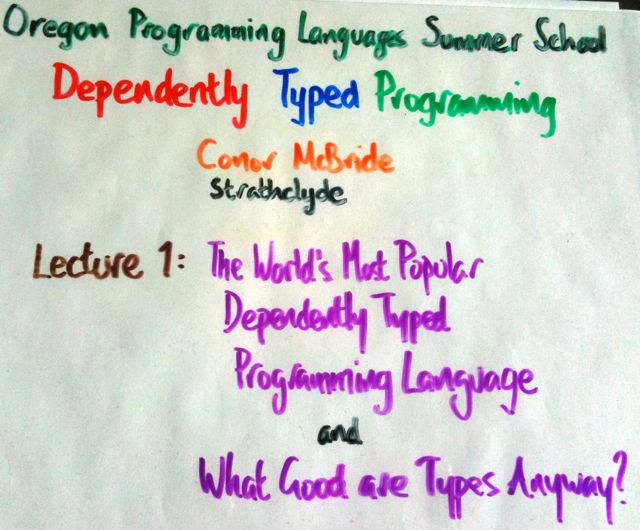 Oregon Programming Languages Summer School
Dependently Typed Programming
Conor McBride
Strathclyde
Lecture 1: The World's Most Popular
Dependently Typed
Programming Language
and
What Good are Types Anyway?